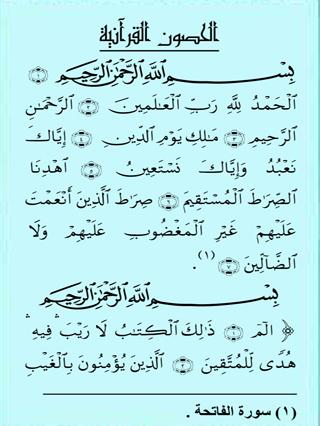 الحصون القرآنية
بِسْمِ اللَّهِ الرَّحْمَٰنِ الرَّحِيمِ ﴿١﴾
الْحَمْدُ لِلَّهِ رَبِّ الْعَالَمِينَ ﴿٢﴾ الرَّحْمَٰنِ
الرَّحِيمِ ﴿٣﴾ مَالِكِ يَوْمِ الدِّينِ ﴿٤﴾ إِيَّاكَ
نَعْبُدُ وَإِيَّاكَ نَسْتَعِينُ ﴿٥﴾ اهْدِنَا
الصِّرَاطَ الْمُسْتَقِيمَ ﴿٦﴾ صِرَاطَ الَّذِينَ أَنْعَمْتَ
عَلَيْهِمْ غَيْرِ الْمَغْضُوبِ عَلَيْهِمْ وَلَا
الضَّالِّينَ ﴿٧﴾ (١) .
بِسْمِ اللَّهِ الرَّحْمَٰنِ الرَّحِيمِ
﴿ الم ﴿١﴾ ذَٰلِكَ الْكِتَابُ لَا رَيْبَ ۛ فِيهِ ۛ
هُدًى لِلْمُتَّقِينَ ﴿٢﴾ الَّذِينَ يُؤْمِنُونَ بِالْغَيْبِ
(١) سورة الفاتحة .